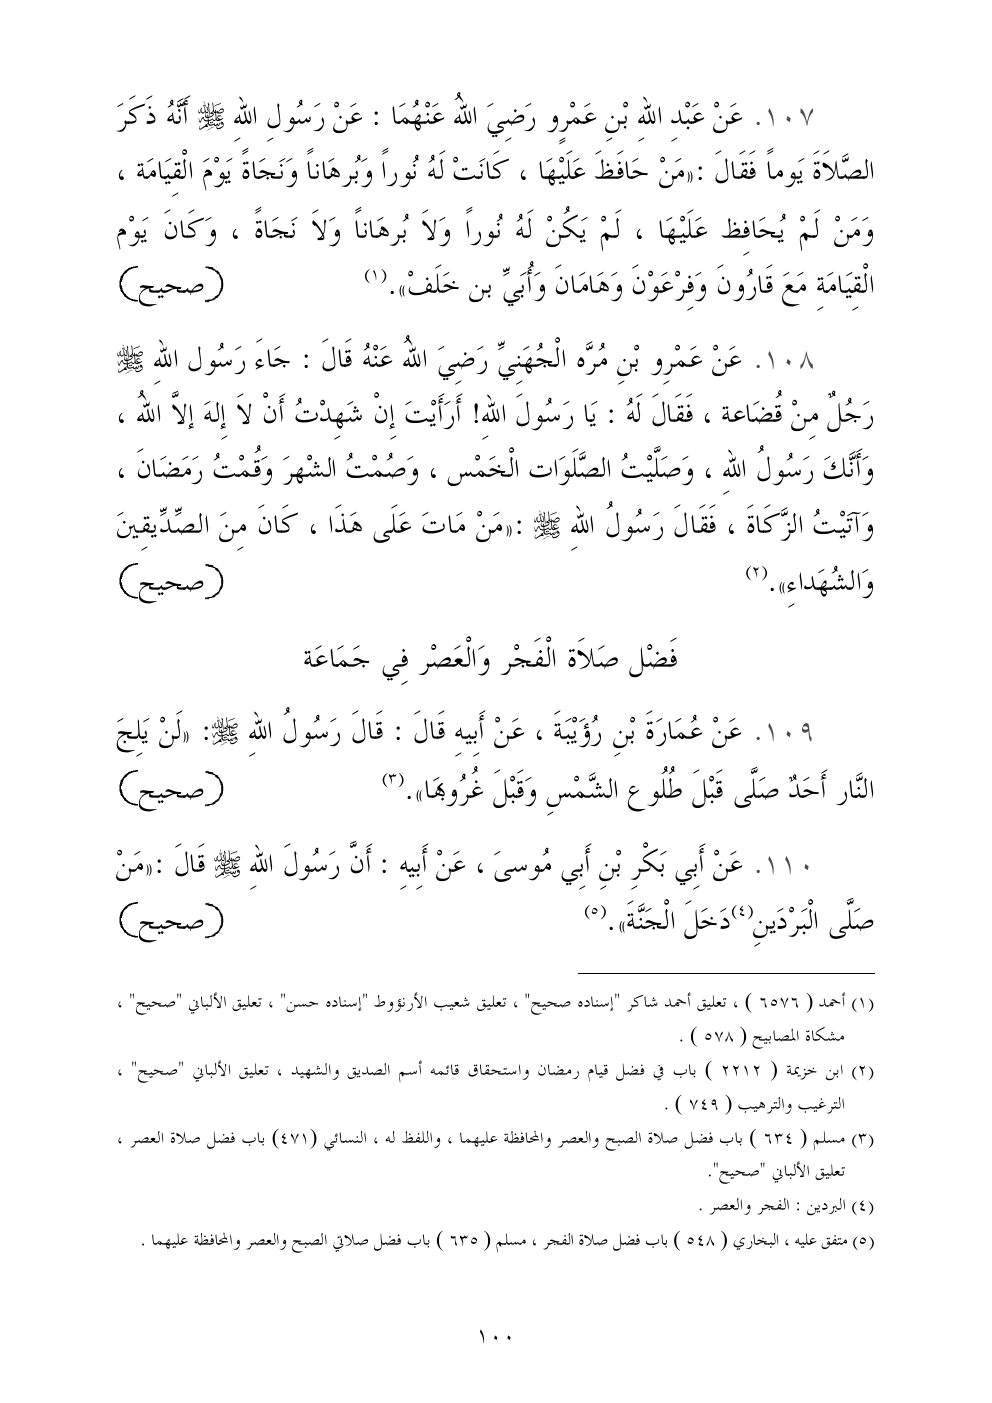 ١٠٧. عَنْ عَبْدِ اللهِ بْنِ عَمْرٍو رَضِيَ اللهُ عَنْهُمَا : عَنْ رَسُولِ اللهِ ﷺ أَنَّهُ ذَكَرَ
الصَّلاَةَ يَوماً فَقَالَ :«مَنْ حَافَظَ عَلَيْهَا ، كَانَتْ لَهُ نُوراً وَبُرهَاناً وَنَجَاةً يَوْمَ الْقِيَامَة ،
وَمَنْ لَمْ يُحَافِظ عَلَيْهَا ، لَمْ يَكُنْ لَهُ نُوراً وَلاَ بُرهَاناً وَلاَ نَجَاةً ، وَكَانَ يَوْم
الْقِيَامَةِ مَعَ قَارُونَ وَفِرْعَوْنَ وَهَامَانَ وَأُبَيِّ بن خَلَفْ».(١) (صحيح)
١٠٨. عَنْ عَمْرِو بْنِ مُرَّه الْجُهَنِيِّ رَضِيَ اللهُ عَنْهُ قَالَ : جَاءَ رَسُول اللهِ ﷺ
رَجُلٌ مِنْ قُضَاعة ، فَقَالَ لَهُ : يَا رَسُولَ اللهِ! أَرَأَيْتَ إِنْ شَهِدْتُ أَنْ لاَ إِلهَ إلاَّ اللهُ ،
وَأَنَّكَ رَسُولُ اللهِ ، وَصَلَّيْتُ الصَّلَوَات الْخَمْس ، وَصُمْتُ الشْهرَ وَقُمْتُ رَمَضَانَ ،
وَآتَيْتُ الزَّكَاةَ ، فَقَالَ رَسُولُ اللهِ ﷺ :«مَنْ مَاتَ عَلَى هَذَا ، كَانَ مِنَ الصِّدِّيقِينَ
وَالشُهَداءِ».(٢) (صحيح)
فَضْل صَلاَة الْفَجْر وَالْعَصْر فِي جَمَاعَة
١٠٩. عَنْ عُمَارَةَ بْنِ رُؤَيْبَةَ ، عَنْ أَبِيهِ قَالَ : قَالَ رَسُولُ اللهِ ﷺ: «لَنْ يَلِجَ
النَّار أَحَدٌ صَلَّى قَبْلَ طُلُوعِ الشَّمْسِ وَقَبْلَ غُرُوبِهَا».(٣) (صحيح)
١١٠. عَنْ أَبِي بَكْرِ بْنِ أَبِي مُوسىَ ، عَنْ أَبِيهِ : أَنَّ رَسُولَ اللهِ ﷺ قَالَ :«مَنْ
صَلَّى الْبَرْدَينِ(٤)دَخَلَ الْجَنَّةَ».(٥) (صحيح)
(١) أحمد ( ٦٥٧٦ ) ، تعليق أحمد شاكر "إسناده صحيح" ، تعليق شعيب الأرنؤوط "إسناده حسن" ، تعليق الألباني "صحيح" ،
مشكاة المصابيح ( ٥٧٨ ) .
(٢) ابن خزيمة ( ٢٢١٢ ) باب في فضل قيام رمضان واستحقاق قائمه أسم الصديق والشهيد ، تعليق الألباني "صحيح" ،
الترغيب والترهيب ( ٧٤٩ ) .
(٣) مسلم ( ٦٣٤ ) باب فضل صلاة الصبح والعصر والمحافظة عليهما ، واللفظ له ، النسائي (٤٧١) باب فضل صلاة العصر ،
تعليق الألباني "صحيح".
(٤) البردين : الفجر والعصر .
(٥) متفق عليه ، البخاري ( ٥٤٨ ) باب فضل صلاة الفجر ، مسلم ( ٦٣٥ ) باب فضل صلاتي الصبح والعصر والمحافظة عليهما .
١٠٠